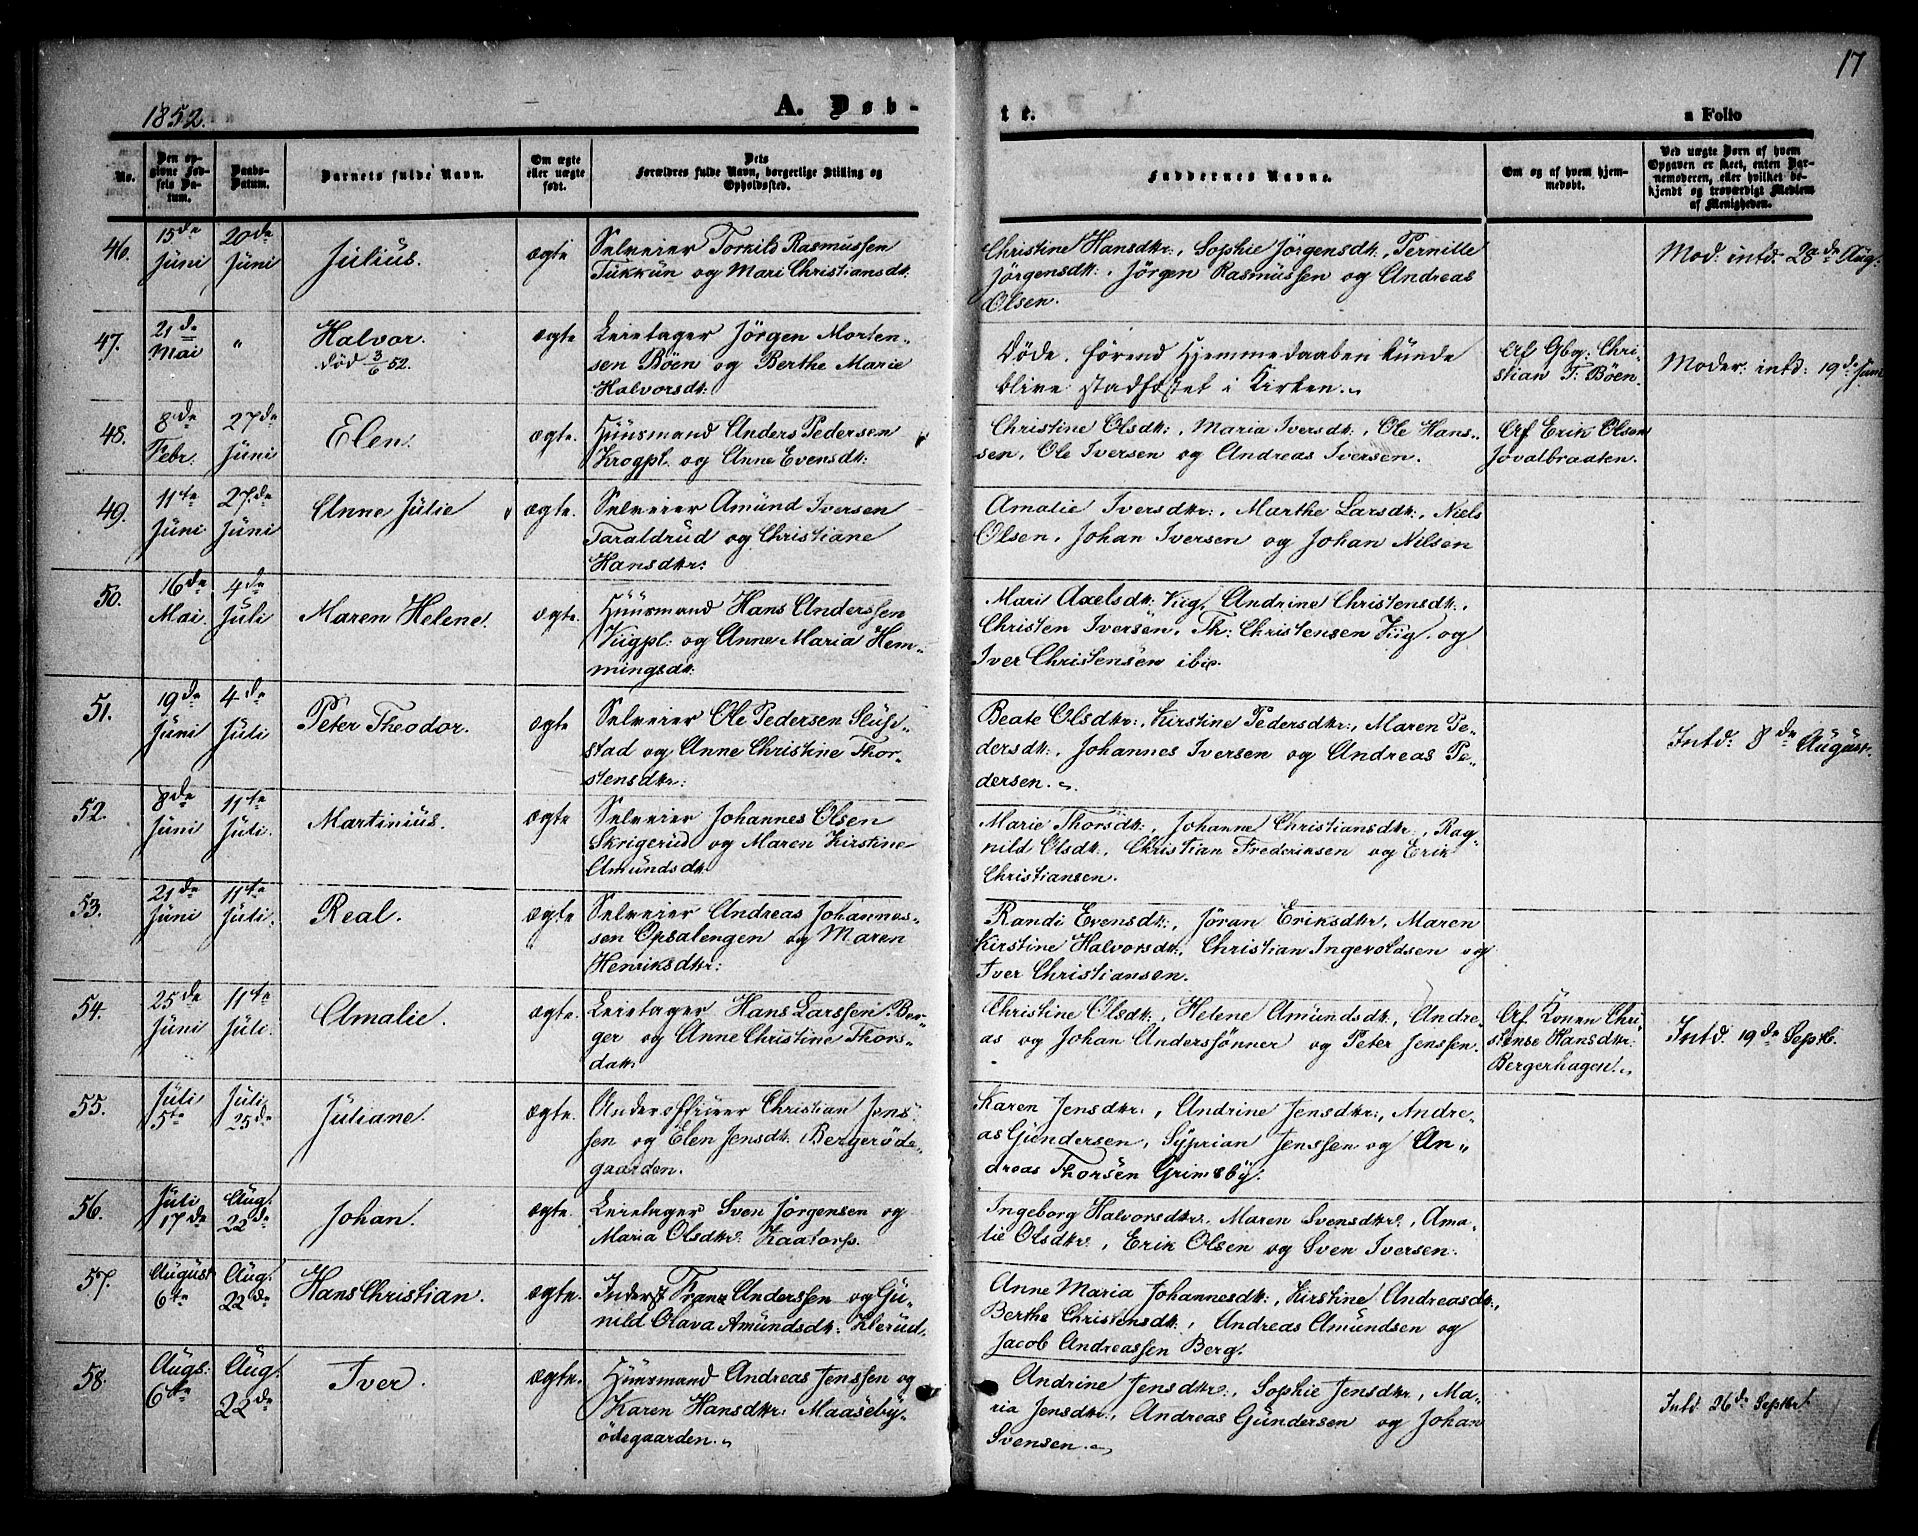 17
1852.
A. Døb-
te.
a Folio
No.
Den op-
givne Fød-
sels Da-
tum.
Daabs-
Datum.
Barnets fulde Navn.
Om ægte
eller uægte
født.
Dets
Forældres fulde Navn, borgerlige Stilling og
Opholdssted.
Faddernes Navne.
Om og af hvem hjem-
medøbt.
Ved uægte Børn af hvem
Opgaven er skeet, enten Bar-
nemoderen, eller hvilket be-
kjendt og troværdigt Medlem
af Menigheden.
46.
15de
Juni
20de
Juni
Julius.
ægte
Selveier Torkild Rasmussen
Tukkun og Mari Christiansdt:
Christine Hansdtr:, Sophie Jörgensdt:, Pernille
Jörgensdt:, Jörgen Rasmussen og Andreas
Olsen.
Mod: intd: 28de Aug.
47.
21de
Mai
"
Halvor.
död 3/6 52.
ægte
Leietager Jörgen Morten-
sen Böen og Berthe Marie
Halvorsdt:
Döde, förend Hjemmedaaben kunde
blive stadfæstet i Kirken.
Af Gbg: Chri-
stian T: Böen.
Moder: intd: 19de Juni
48.
8de
Febr:
27de
Juni
Elen.
ægte.
Huusmand Anders Pedersen
Krogpl. og Anne Evensdt:
Christine Olsdt:, Maria Iversdt:, Ole Han-
sen, Ole Iversen og Andreas Iversen.
Af Erik Olsen
Jovalbraaten.
49.
11te
Juni
27de
Juni
Anne Julie
ægte.
Selveier Amund Iversen
Taraldrud og Christiane
Hansdtr:
Amalie Iversdtr:, Marthe Larsdt:, Niels
Olsen, Johan Iversen og Johan Nilsen
50.
16de
Mai.
4de
Juli
Maren Helene.
ægte.
Huusmand Hans Anderssen
Kiigpl: og Anne Maria Hem-
mingsdt:
Mari Axelsdt: Kiig, Andrine Christensdt:,
Christen Iversen, Th: Christensen Kiig, og
Iver Christensen ibid.
51.
19de
Juni
4de
Juli
Peter Theodor.
ægte
Selveier Ole Pedersen Sluf-
stad og Anne Christine Thor-
stensdtr:
Beate Olsdtr:, Kirstine Pedersdtr:, Maren Pe-
dersdt:, Johannes Iversen og Andreas Pe-
dersen.
Intd: 8de August.
52.
8de
Juni
11te
Juli.
Martinius.
ægte
Selveier Johannes Olsen
Skrigerud og Maren Kirstine
Amundsdt:
Marie Thorsdt:, Johanne Christiansdtr:, Rag-
nild Olsdt:, Christian Frederiksen og Erik
Christiansen.
53.
21de
Juni
11te
Juli.
Real.
ægte
Selveier Andreas Johannes-
sen Opsalengen og Maren
Henriksdtr:
Randi Evensdt:, Jöran Eriksdtr, Maren
Kirstine Halvorsdt:, Christian Ingevoldsen og
Iver Christiansen.
54.
25de
Juni
11te
Juli.
Amalie.
ægte.
Leietager Hans Larssen Ber-
ger og Anne Christine Thors-
datt:
Christine Olsdt:, Helene Amundsdt:, Andre-
as og Johan Anderssönner og Peter Jenssen.
Af Konen Chri-
stense Hansdtr:
Bergerhagen.
Intd. 19de Septb.
55.
Juli
5te
Juli
25de
Juliane.
ægte.
Underofficier Christian Jens-
sen og Elen Jensdt: Bergeröde-
gaarden.
Karen Jensdtr:, Andrine Jensdtr:, Andre-
as Gundersen, Syprian Jenssen og An-
dreas Thorsen Grimsby.
56.
Juli
17de
Aug:
22de
Johan.
ægte.
Leietager Sven Jörgensen og
Maria Olsdtr. Kaatorp.
Ingeborg Halvorsdtr, Maren Svensdtr, Ama-
lie Olsdtr, Erik Olsen og Sven Iversen.
57.
August
6te
Aug.
22de
Hans Christian.
ægte.
Inderst Franz Anderssen og Gu-
nild Olava Amundsdt: Klerud.
Anne Maria Johannesdt:, Kirstine Andreasdt:,
Berthe Christensdt:, Andreas Amundsen og
Jacob Andreassen Berg.
58.
Augs:
6te
Aug.
22de
Iver.
ægte.
Huusmand Andreas Jenssen og
Karen Hansdtr: Maaseby-
ödegaarden.
Andrine Jensdtr:, Sophie Jensdtr, Ma-
ria Jensdtr:, Andreas Gundersen og Johan
Svensen.
Intd 26de Septbr.